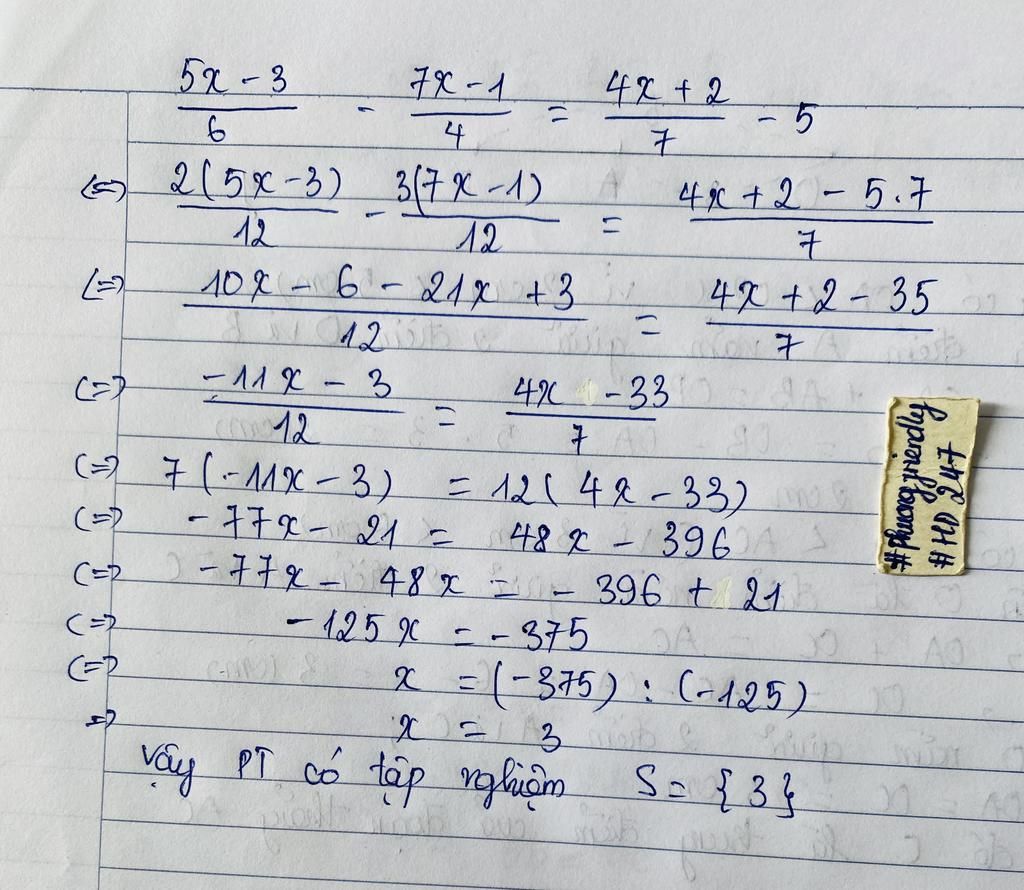 (5x - 3)/6 - (7x - 1)/4 = (4x + 2)/7 - 5
(=) 2(5x - 3)/12 - 3(7x - 1)/12 = (4x + 2 - 5.7)/7
(=) (10x - 6 - 21x + 3)/12 = (4x + 2 - 35)/7
(=) (-11x - 3)/12 = (4x - 33)/7
(=) 7(-11x - 3) = 12(4x - 33)
(=) -77x - 21 = 48x - 396
(=) -77x - 48x = - 396 + 21
(=) -125x = -375
(=) x = (-375) : (-125)
=) x = 3
Vậy PT có tập nghiệm S = {3}
#Phuongfriendly
#HD 247